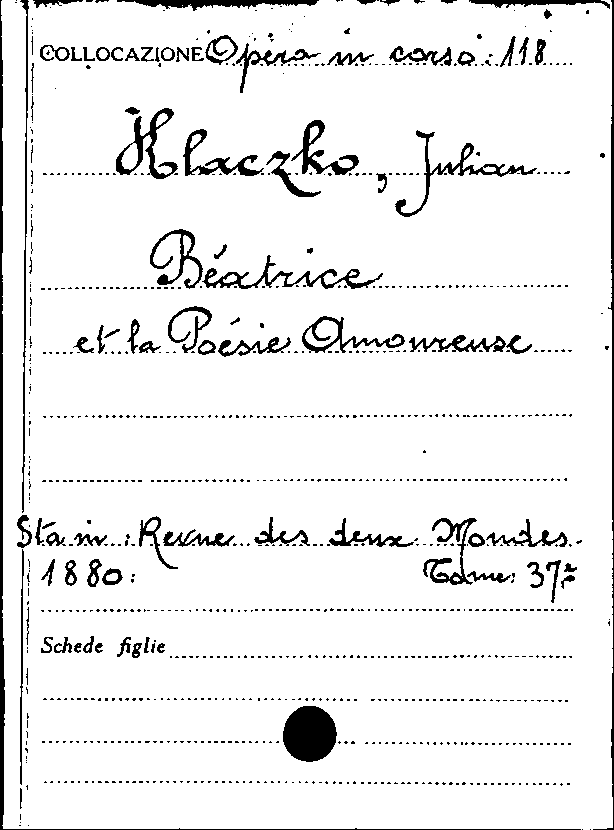 COLLOCAZIONE Opera in corso: 118
Klaczko, Julian
Béatrice
et la Poésie Amoureuse
Sta in: Revue des deux Mondes.
1880: Tome: 37
Schede figlie